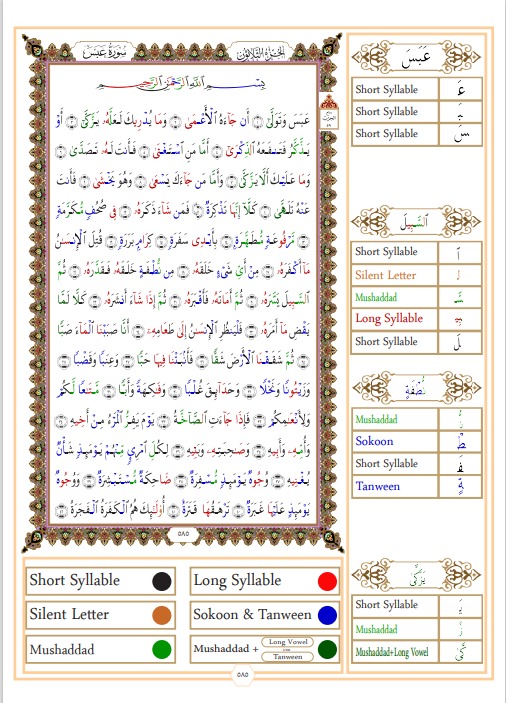 سُورَةُ عَبَسَ
الجُزْءُ الثَّلَاثُونَ
بِسْمِ ٱللَّهِ ٱلرَّحْمَٰنِ ٱلرَّحِيمِ
عَبَسَ وَتَوَلَّىٰٓ ١ أَن جَآءَهُ ٱلْأَعْمَىٰ ٢ وَمَا يُدْرِيكَ لَعَلَّهُۥ يَزَّكَّىٰٓ ٣ أَوْ
يَذَّكَّرُ فَتَنفَعَهُ ٱلذِّكْرَىٰٓ ٤ أَمَّا مَنِ ٱسْتَغْنَىٰ ٥ فَأَنتَ لَهُۥ تَصَدَّىٰ ٦
وَمَا عَلَيْكَ أَلَّا يَزَّكَّىٰ ٧ وَأَمَّا مَن جَآءَكَ يَسْعَىٰ ٨ وَهُوَ يَخْشَىٰ ٩ فَأَنتَ
عَنْهُ تَلَهَّىٰ ١٠ كَلَّآ إِنَّهَا تَذْكِرَةٌ ١١ فَمَن شَآءَ ذَكَرَهُۥ ١٢ فِى صُحُفٍ مُّكَرَّمَةٍ
١٣ مَّرْفُوعَةٍ مُّطَهَّرَةٍۭ ١٤ بِأَيْدِى سَفَرَةٍ ١٥ كِرَامٍۭ بَرَرَةٍ ١٦ قُتِلَ ٱلْإِنسَٰنُ
مَآ أَكْفَرَهُۥ ١٧ مِنْ أَىِّ شَىْءٍ خَلَقَهُۥ ١٨ مِن نُّطْفَةٍ خَلَقَهُۥ فَقَدَّرَهُۥ ١٩ ثُمَّ
ٱلسَّبِيلَ يَسَّرَهُۥ ٢٠ ثُمَّ أَمَاتَهُۥ فَأَقْبَرَهُۥ ٢١ ثُمَّ إِذَا شَآءَ أَنشَرَهُۥ ٢٢ كَلَّا لَمَّا
يَقْضِ مَآ أَمَرَهُۥ ٢٣ فَلْيَنظُرِ ٱلْإِنسَٰنُ إِلَىٰ طَعَامِهِۦٓ ٢٤ أَنَّا صَبَبْنَا ٱلْمَآءَ صَبًّا
٢٥ ثُمَّ شَقَقْنَا ٱلْأَرْضَ شَقًّا ٢٦ فَأَنۢبَتْنَا فِيهَا حَبًّا ٢٧ وَعِنَبًا وَقَضْبًا ٢٨
وَزَيْتُونًا وَنَخْلًا ٢٩ وَحَدَآئِقَ غُلْبًا ٣٠ وَفَٰكِهَةً وَأَبًّا ٣١ مَّتَٰعًا لَّكُمْ
وَلِأَنْعَٰمِكُمْ ٣٢ فَإِذَا جَآءَتِ ٱلصَّآخَّةُ ٣٣ يَوْمَ يَفِرُّ ٱلْمَرْءُ مِنْ أَخِيهِ ٣٤
وَأُمِّهِۦ وَأَبِيهِ ٣٥ وَصَٰحِبَتِهِۦ وَبَنِيهِ ٣٦ لِكُلِّ ٱمْرِئٍ مِّنْهُمْ يَوْمَئِذٍ شَأْنٌ
يُغْنِيهِ ٣٧ وُجُوهٌ يَوْمَئِذٍ مُّسْفِرَةٌ ٣٨ ضَاحِكَةٌ مُّسْتَبْشِرَةٌ ٣٩ وَوُجُوهٌ
يَوْمَئِذٍ عَلَيْهَا غَبَرَةٌ ٤٠ تَرْهَقُهَا قَتَرَةٌ ٤١ أُو۟لَٰٓئِكَ هُمُ ٱلْكَفَرَةُ ٱلْفَجَرَةُ ٤٢
٥٨٥
عَبَسَ
Short Syllable عَـ
Short Syllable ـبَـ
Short Syllable ـسَ
ٱلسَّبِيلَ
Short Syllable ٱ
Silent Letter لـ
Mushaddad سَّـ
Long Syllable ـبِيـ
Short Syllable ـلَ
نُّطْفَةٍ
Mushaddad نُّـ
Sokoon ـطْـ
Short Syllable ـفَـ
Tanween ـةٍ
يَزَّكَّىٰٓ
Short Syllable يَـ
Mushaddad ـزَّ
Mushaddad+Long Vowel كَّىٰٓ
Short Syllable
Long Syllable
Silent Letter
Sokoon & Tanween
Mushaddad
Mushaddad + Long Vowel
Tanween
٥٨٥